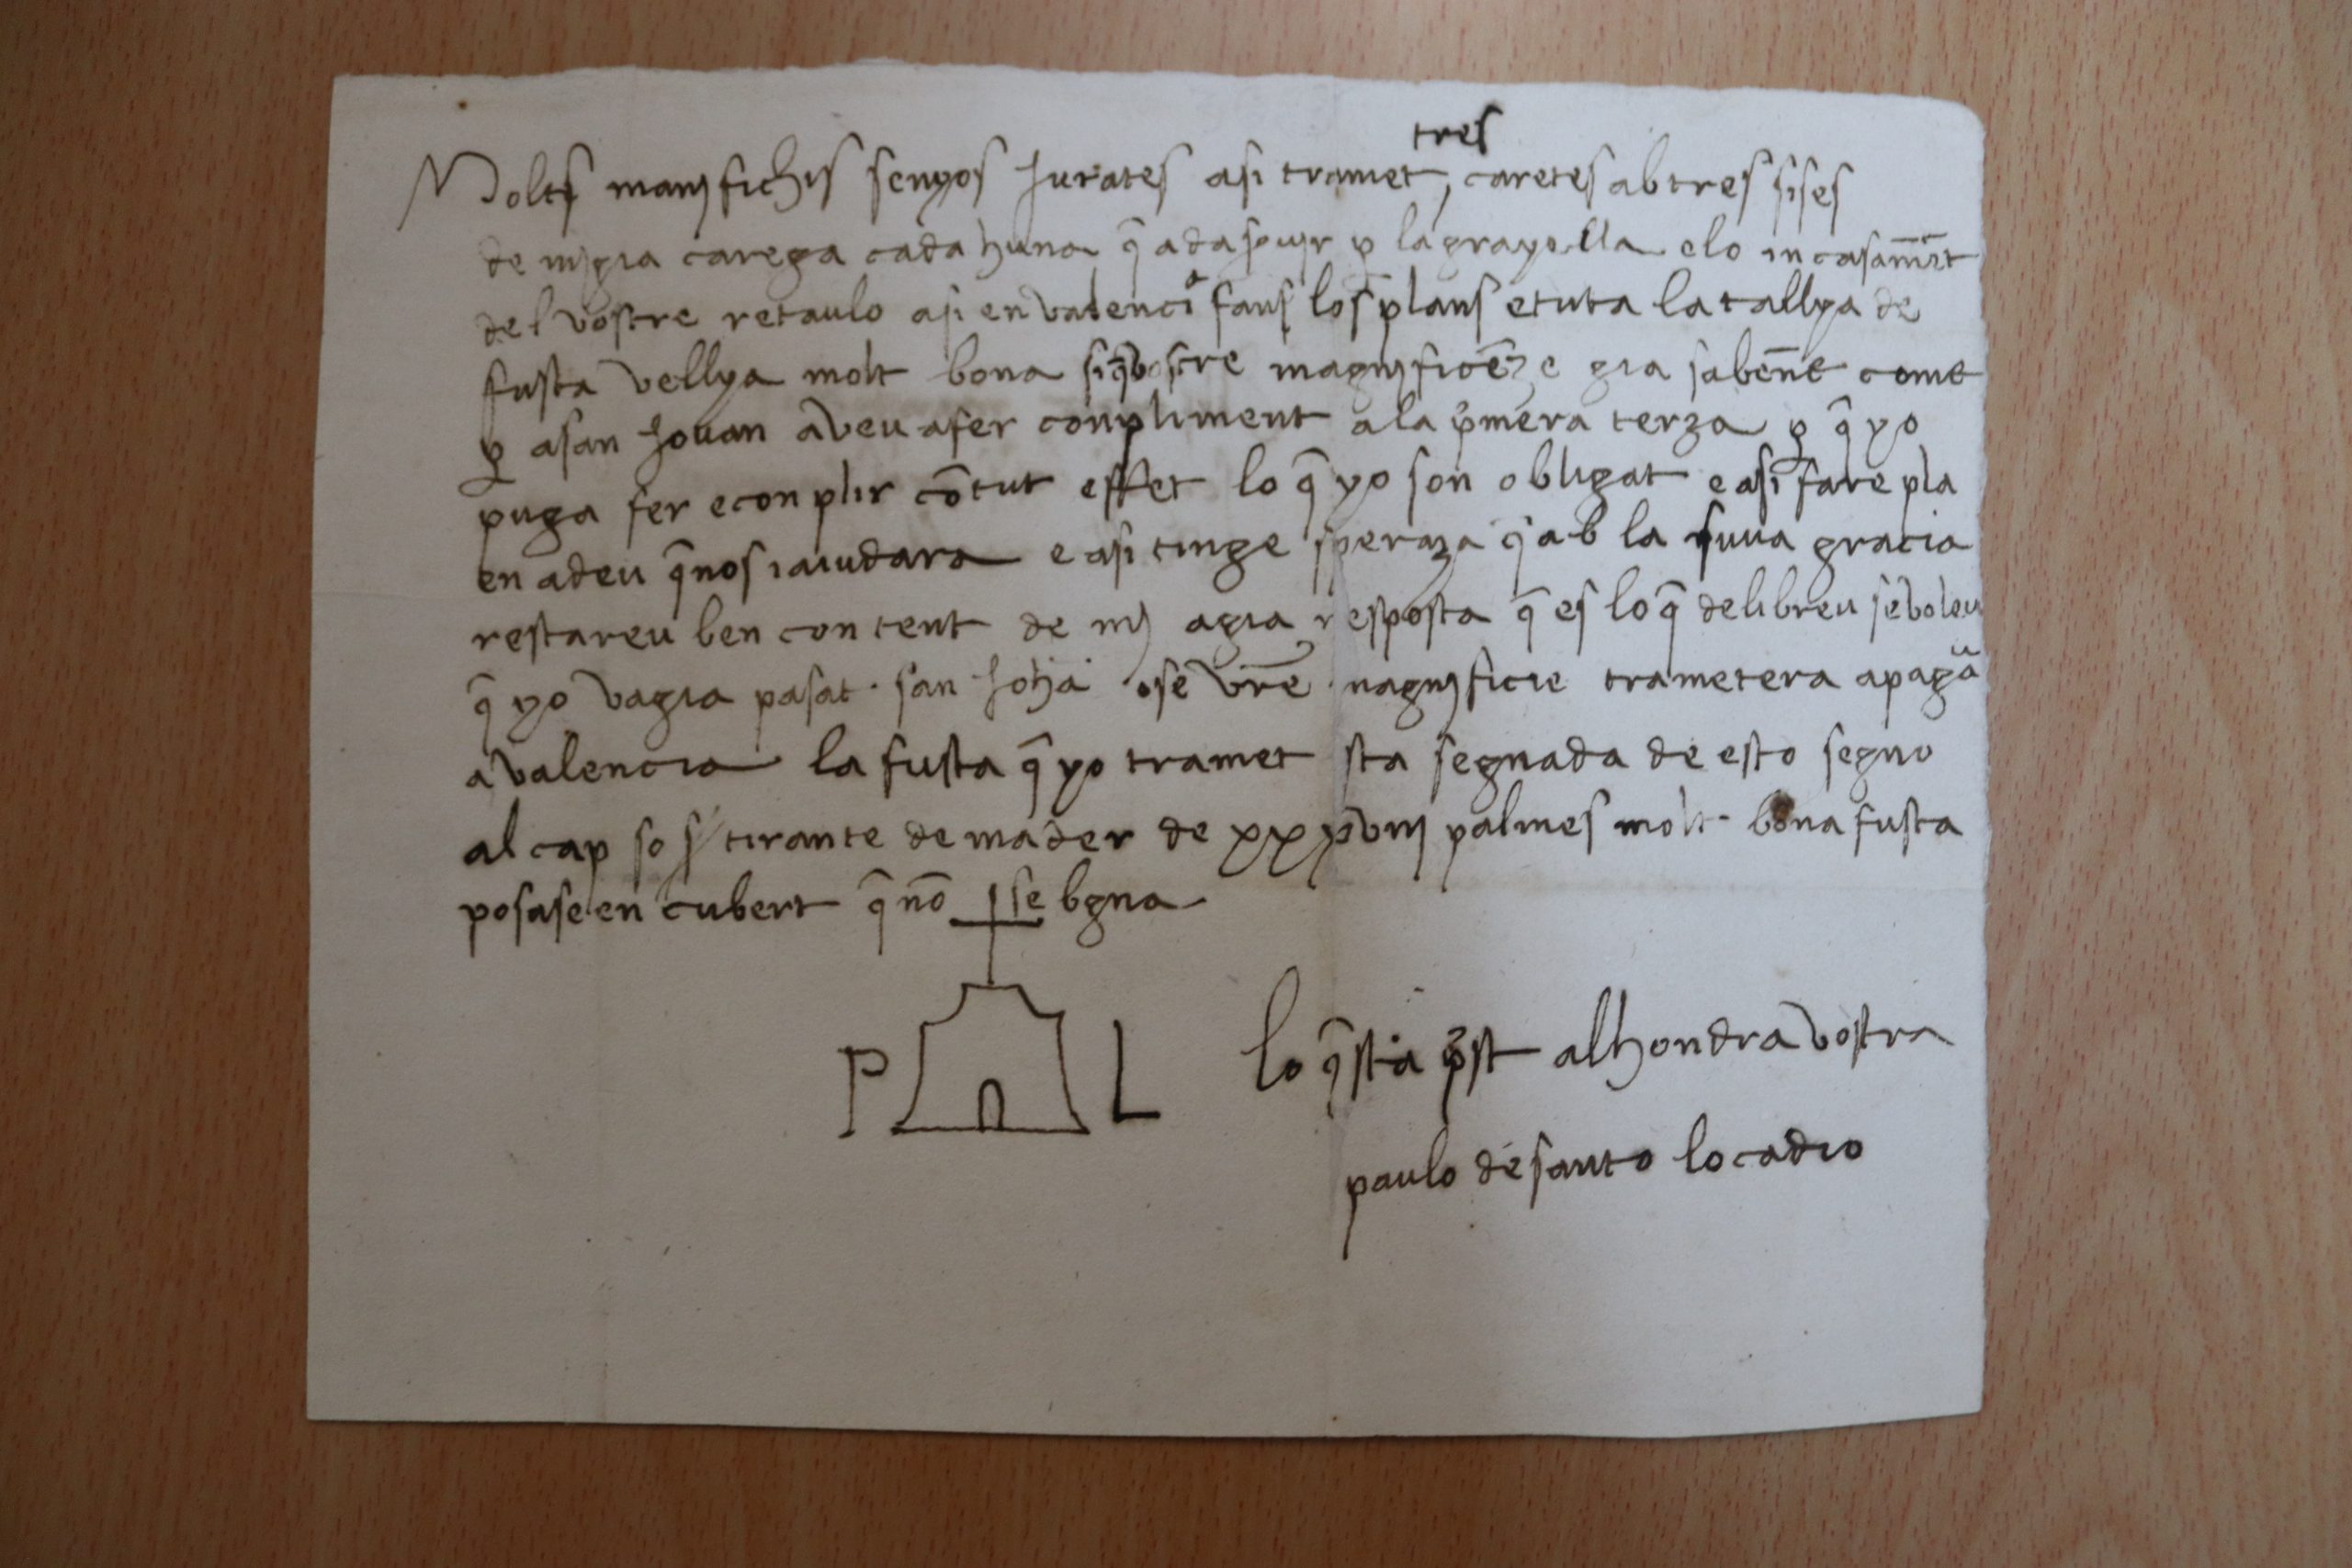 tres
Molts manifichis senyos Jurates asi tramet, caretes ab tres sises
de migia carega cada huna q̄ a da seruir p̱ la grayolla e lo in casam̄et
del vostre retaulo asi en valencia fans los plans e tuta la tallya de
fusta vellya molt bona si q̄ vostre magnificēze gia saben̄t come
p̱ a san Jouan aveu a fer conpliment a la p̄mera terza p̱ q̄ yo
puga fer e conplir cōtut effet lo q̄ yo son obligat e asi fare pla
en a deu q̄ nos i aiudara e asi tinge speraza q̄ ab la suua gracia
restareu ben content de mi agia resposta q̄ es lo q̄ delibreu se voleu
q̄ yo vagia pasat san o se vr̄e magnificie trametera a pagā
a valencia la fusta q̄ yo tramet sta segnada de esto segno
al cap so s tirante de mader de xxxviij palmes molt bona fusta
posase en cubert q̄ nō se bgna
P L
lo q̄ sta p̄st al hondra vostra
paulo de santo locadio